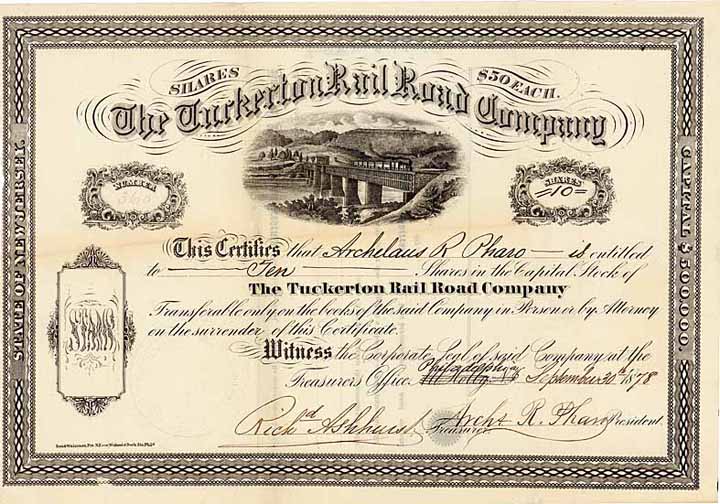 SHARES $50 EACH.
The Tuckerton Rail Road Company
NUMBER
SHARES
10
STATE OF NEW JERSEY.
CAPITAL $500000.
This Certifies that Archelaus R Pharo is entitled
to Ten Shares in the Capital Stock of
The Tuckerton Rail Road Company
Transferable only on the books of the said Company in Person or by Attorney
on the surrender of this Certificate.
Witness the Corporate Seal of said Company at the
Philadelphia
Treasurers Office, September 30th 1878
Richd Ashhurst Archs R. Pharo
Treasurer. President.